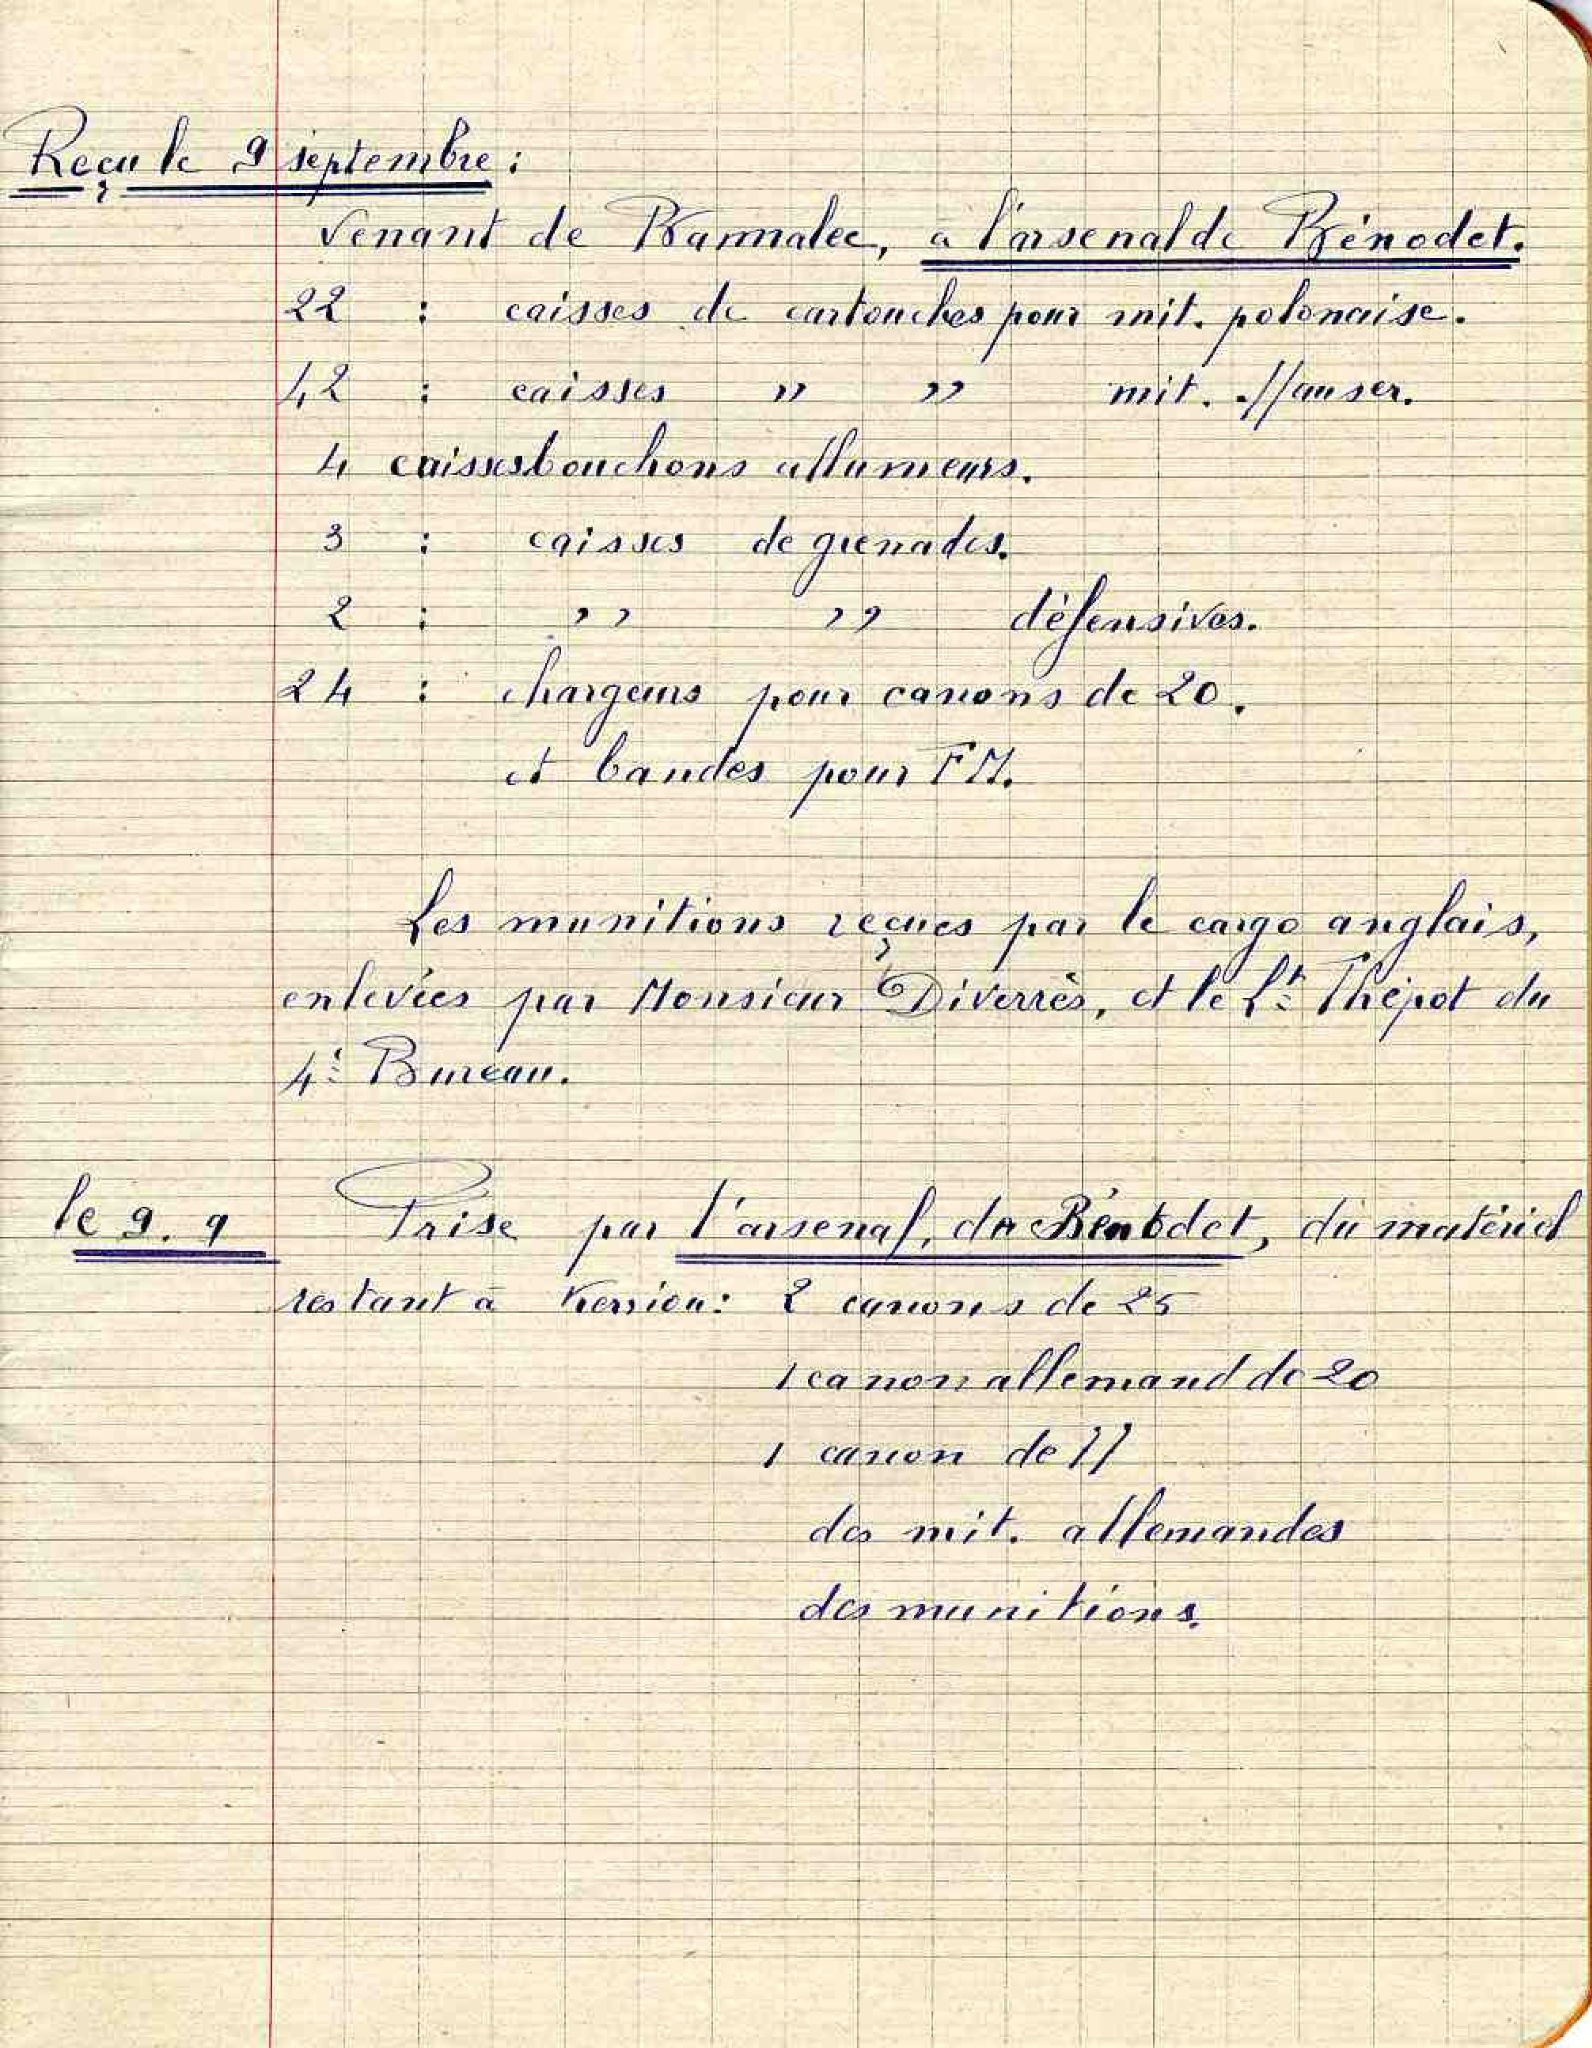 Reçu le 9 septembre :
Venant de Bannalec, à l'arsenal de Bénodet.
22 : caisses de cartouches pour mit. polonaise.
42 : caisses " " mit. Mauser.
4 caisses bouchons allumeurs.
3 : caisses de grenades.
2 : " " défensives.
24 : chargeurs pour canons de 20.
et bandes pour FM.
Les munitions reçues par le cargo anglais,
enlevées par Monsieur Diverrès, et le Lt Thépot du
4è Bureau.
le 9.9 Prise par l'arsenal, de Bénodet, du matériel
restant à Kerriou : 2 canons de 25
1 canon allemand de 20
1 canon de 77
des mit. allemandes
des munitions.